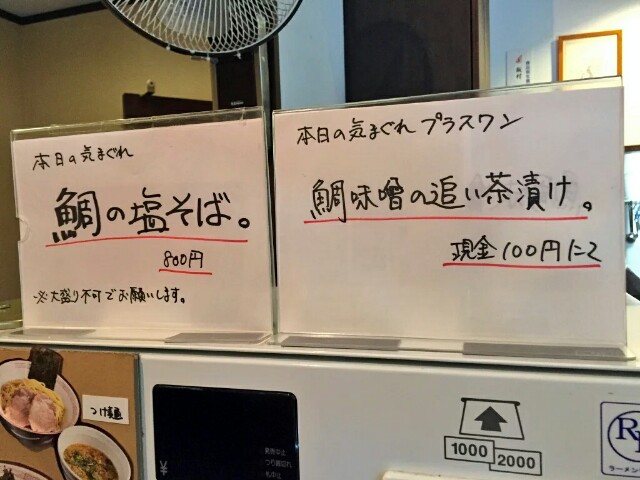 本日の気まぐれ
鯛の塩そば。
800円
※大盛り不可でお願いします。
本日の気まぐれ プラスワン
鯛味噌の追い茶漬け。
現金100円にて
つけ麺
¥
発売中止
つり銭切れ
札中止
1000
2000
ラーメン